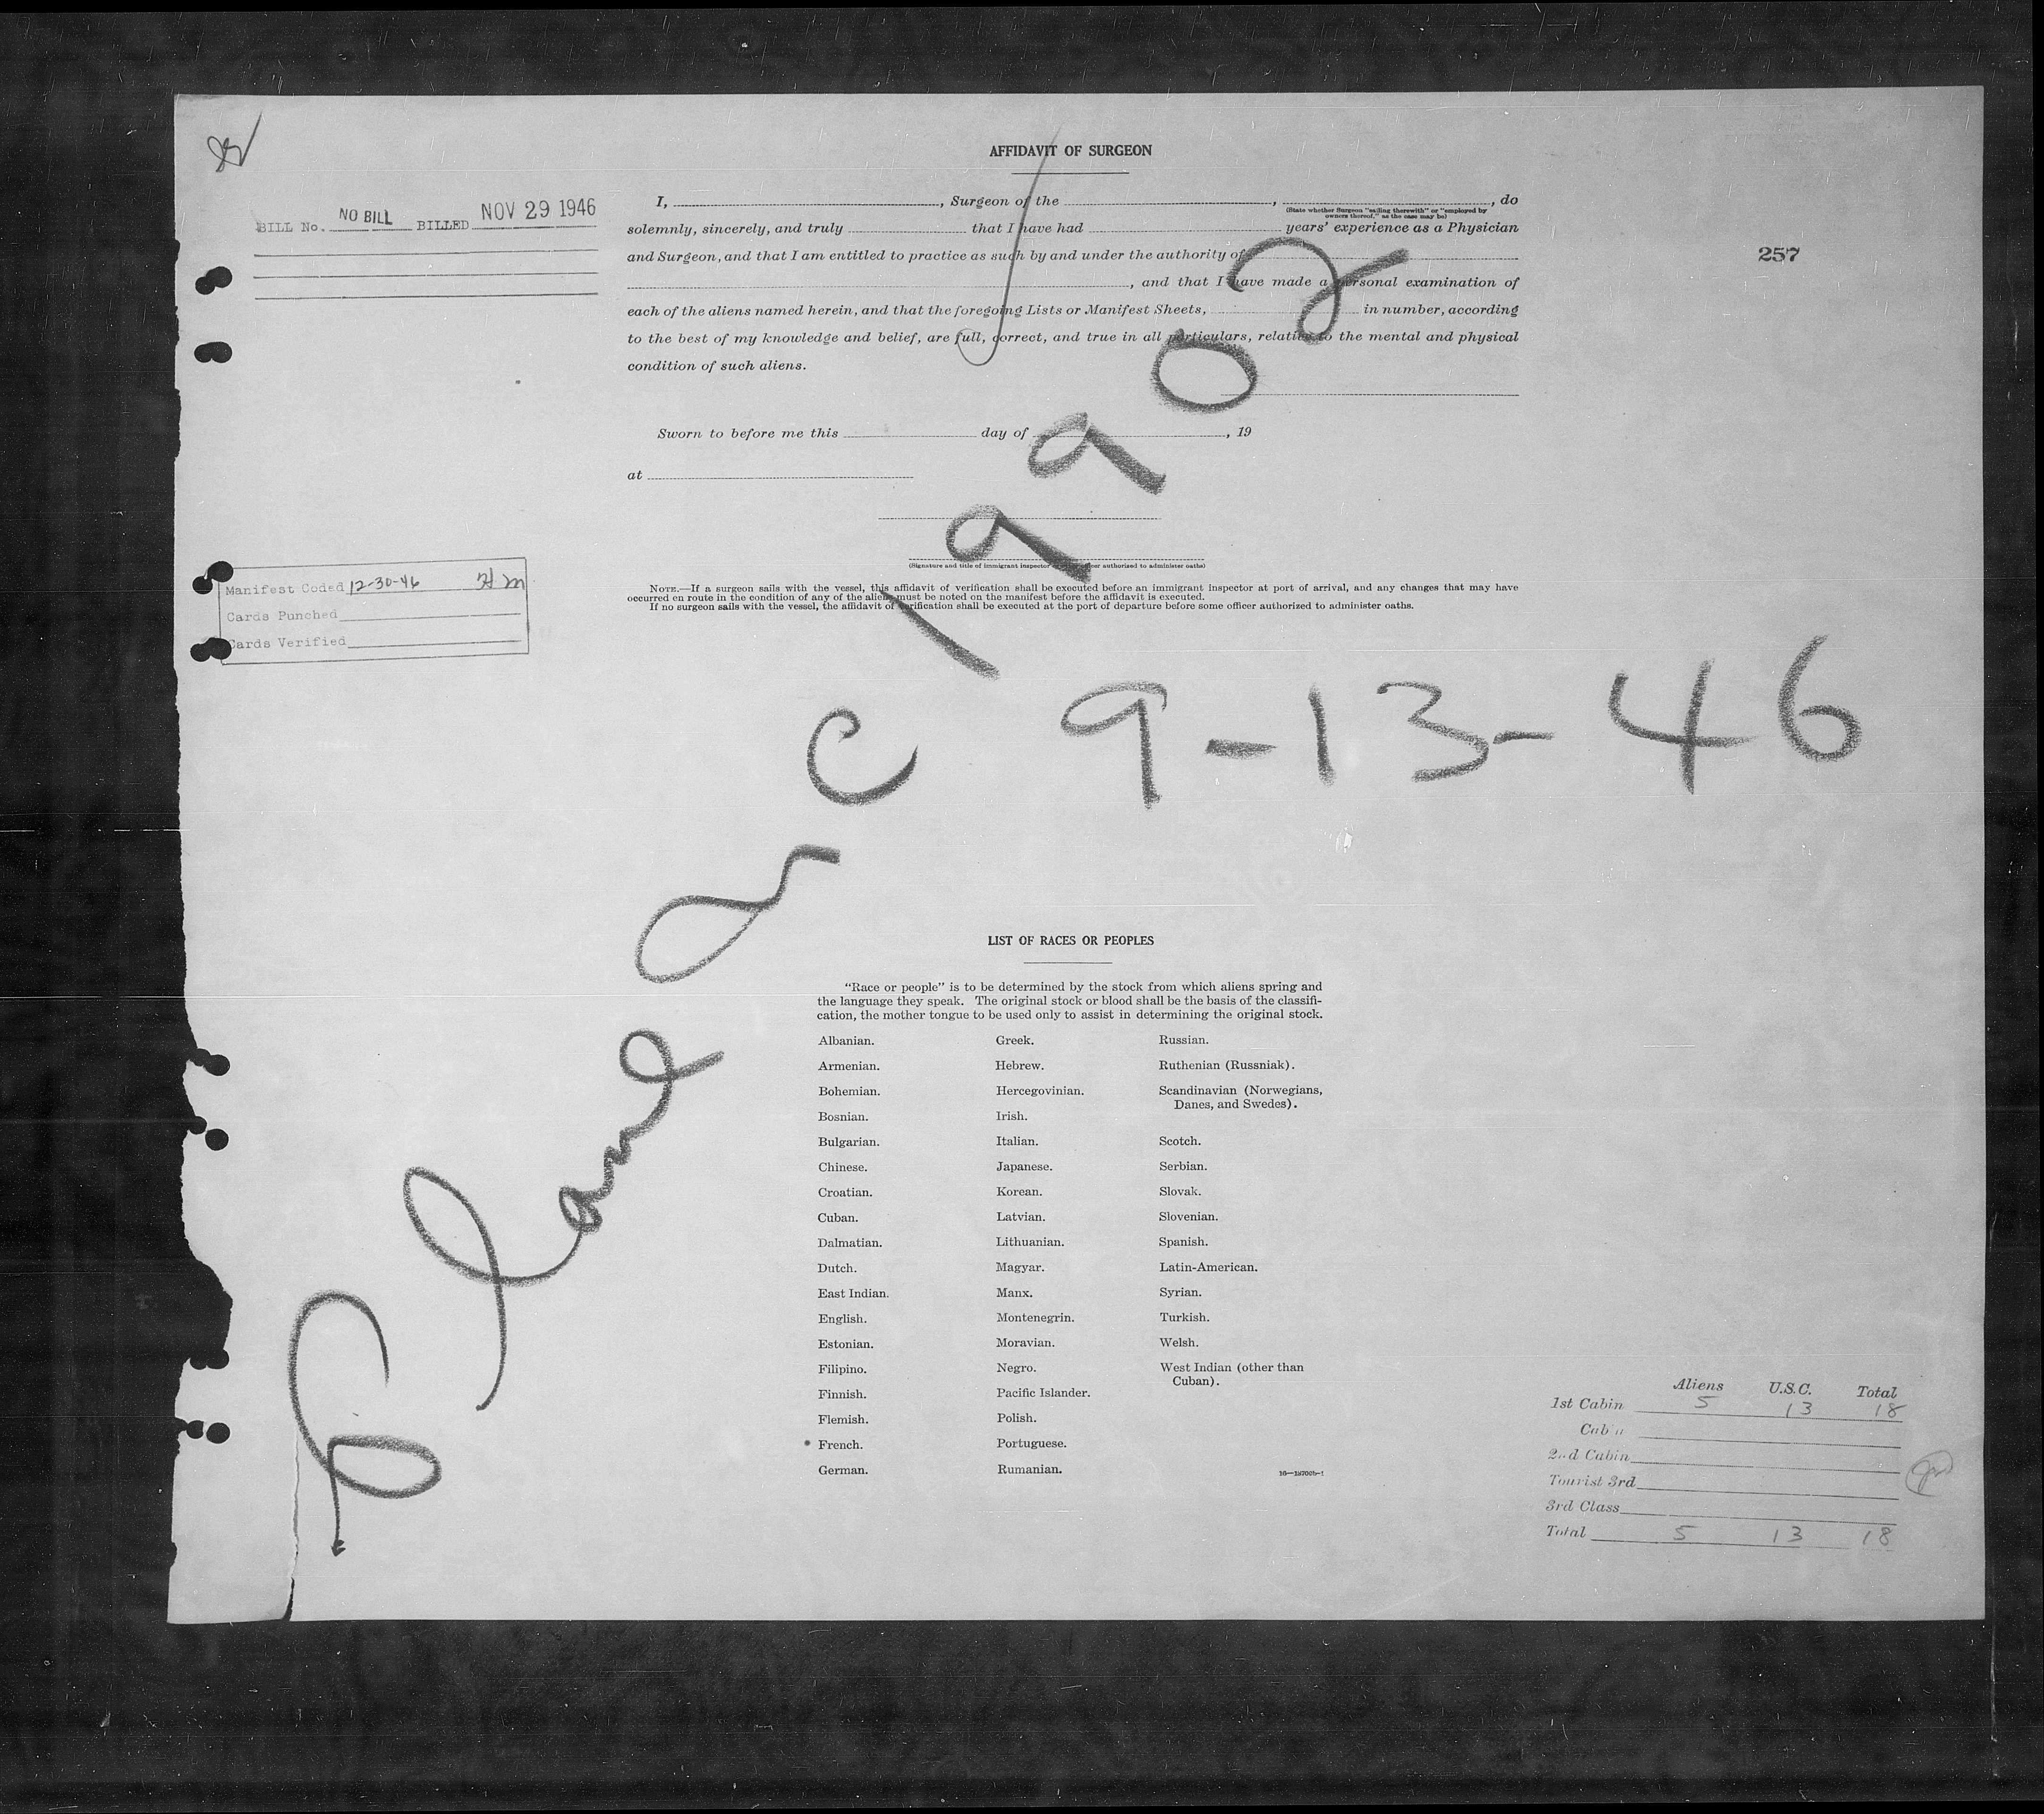 AFFIDAVIT OF SURGEON
BILL No. NO BILL BILLED NOV 29 1946
257
I, , Surgeon of the , , do
(State whether Surgeon "sailing therewith" or "employed by
owners thereof," as the case may be)
solemnly, sincerely, and truly that I have had years' experience as a Physician
and Surgeon, and that I am entitled to practice as such by and under the authority of
, and that I have made a personal examination of
each of the aliens named herein, and that the foregoing Lists or Manifest Sheets, in number, according
to the best of my knowledge and belief, are full, correct, and true in all particulars, relative to the mental and physical
condition of such aliens.
Sworn to before me this day of , 19
at
(Signature and title of immigrant inspector or officer authorized to administer oaths)
NOTE.—If a surgeon sails with the vessel, this affidavit of verification shall be executed before an immigrant inspector at port of arrival, and any changes that may have
occurred en route in the condition of any of the aliens must be noted on the manifest before the affidavit is executed.
If no surgeon sails with the vessel, the affidavit of verification shall be executed at the port of departure before some officer authorized to administer oaths.
Manifest Coded 12-30-46
Cards Punched
Cards Verified
Plane
9-13-46
LIST OF RACES OR PEOPLES
"Race or people" is to be determined by the stock from which aliens spring and
the language they speak. The original stock or blood shall be the basis of the classifi-
cation, the mother tongue to be used only to assist in determining the original stock.
Albanian.
Armenian.
Bohemian.
Bosnian.
Bulgarian.
Chinese.
Croatian.
Cuban.
Dalmatian.
Dutch.
East Indian.
English.
Estonian.
Filipino.
Finnish.
Flemish.
French.
German.
Greek.
Hebrew.
Hercegovinian.
Irish.
Italian.
Japanese.
Korean.
Latvian.
Lithuanian.
Magyar.
Manx.
Montenegrin.
Moravian.
Negro.
Pacific Islander.
Polish.
Portuguese.
Rumanian.
Russian.
Ruthenian (Russniak).
Scandinavian (Norwegians,
Danes, and Swedes).
Scotch.
Serbian.
Slovak.
Slovenian.
Spanish.
Latin-American.
Syrian.
Turkish.
Welsh.
West Indian (other than
Cuban).
Aliens U.S.C. Total
1st Cabin 5 13 18
Cabin
2nd Cabin
Tourist 3rd
3rd Class
Total 5 13 18